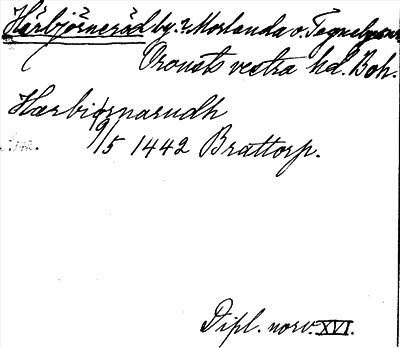 Härbjörneröd by. i Morlanda o. Tegneby snr
Orousts vestra hd. Boh.
Hærbiornarudh
9/5 1442 Brattorp.
Dipl. norv. XVI.